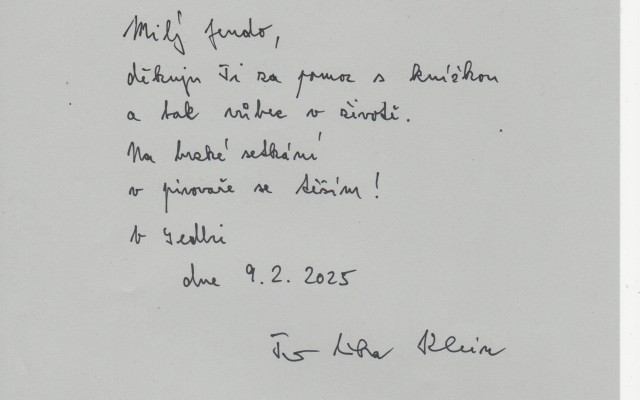 Milý Jendo,
děkuju Ti za pomoc s knížkou
a tak vůbec v životě.
Na brzké setkání
v pivovaře se těším!
V
dne 9.2.2025
Klein